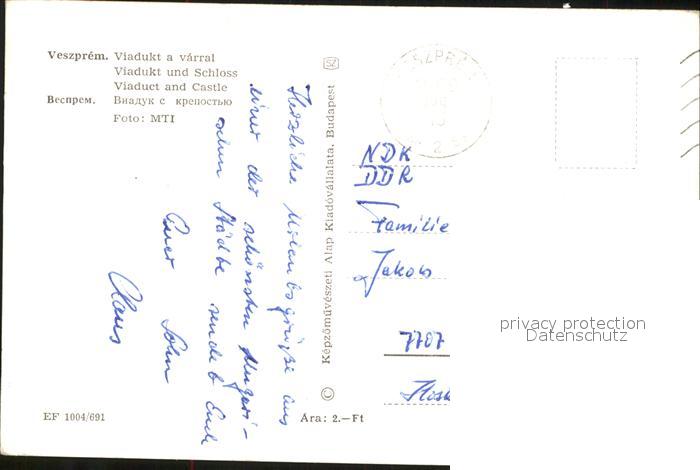 Veszprém. Viadukt a várral
Viadukt und Schloss
Viaduct and Castle
Веспрем. Виадук с крепостью
Foto: MTI
Herzliche Urlaubsgrüße aus
einer der schönsten Ungari-
schen Städte sendet Euch
Euer Sohn
Claus
Képzőművészeti Alap Kiadóvállalata, Budapest
©
SZ
VESZPRÉM
NDK
DDR
Familie
Jakob
7707
privacy protection
Datenschutz
EF 1004/691
Ára: 2.—Ft